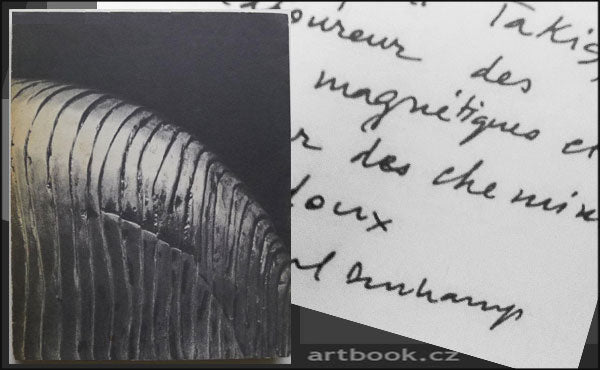 Takis,
laboureur des
magnétiques et
des chemins
doux
Duchamp
artbook.cz